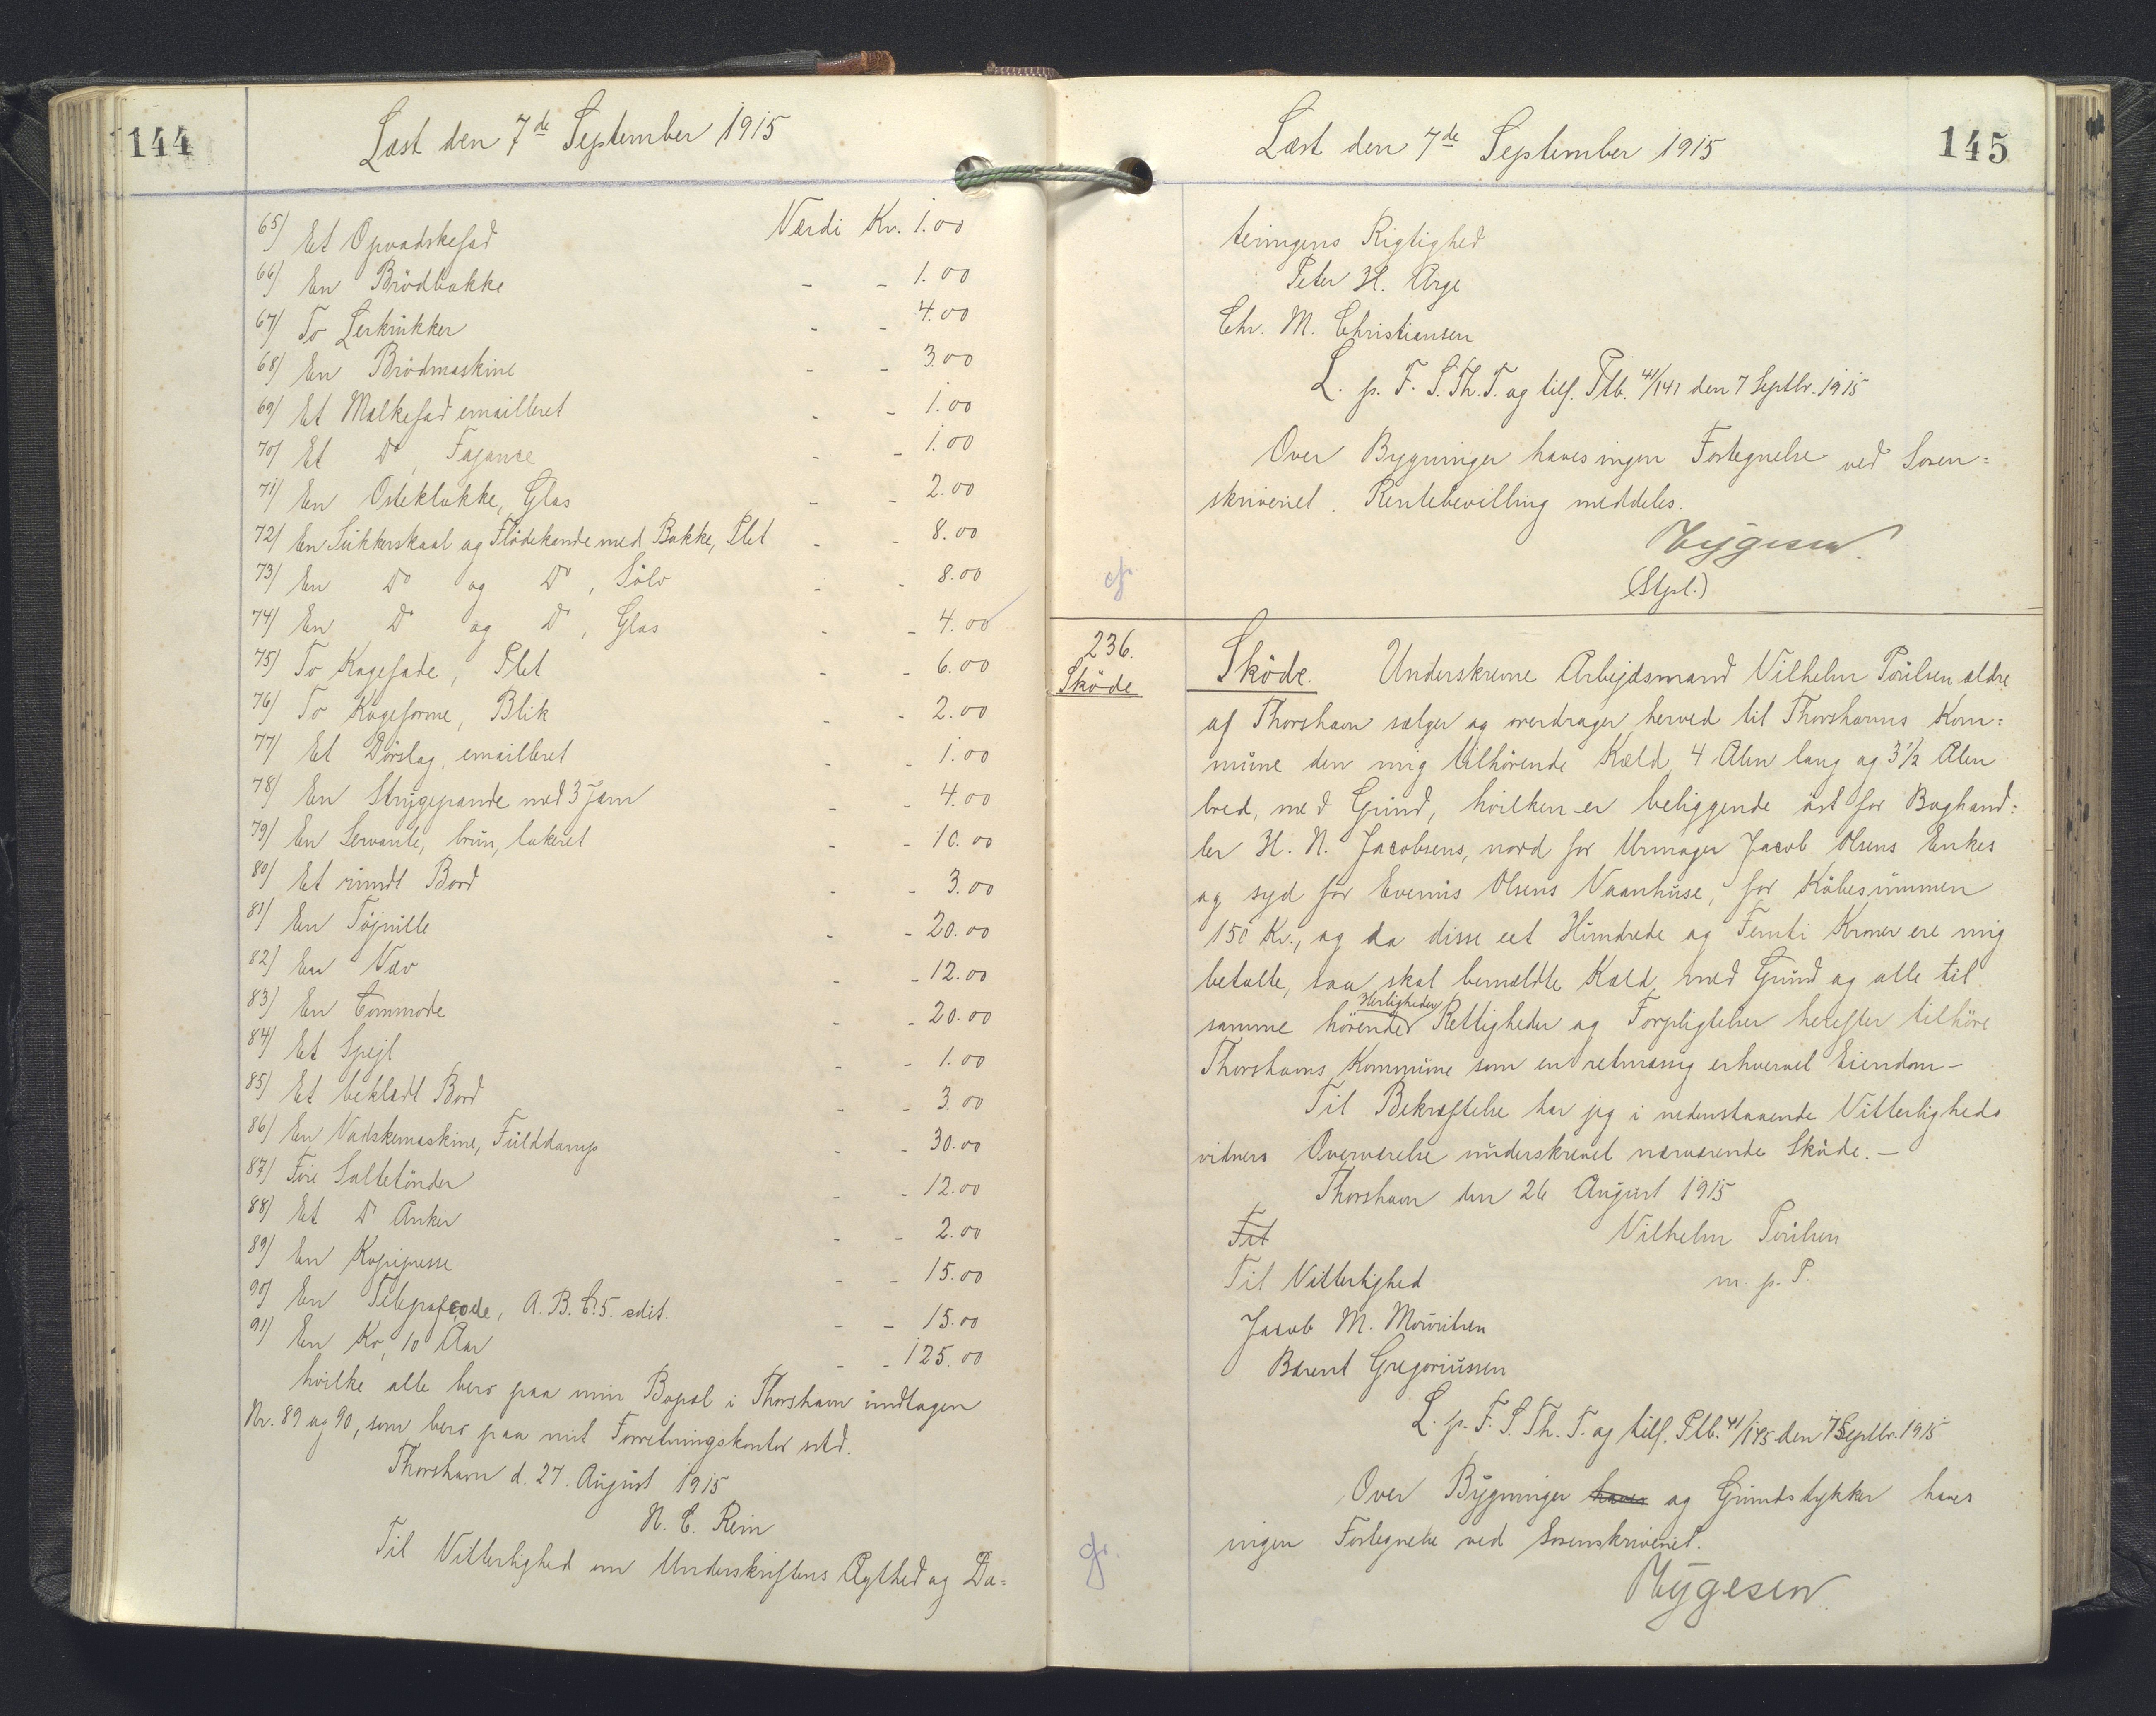 144
Læst den 7de September 1915
65) Et Opvadskefad Værdi Kr. 1.00
66) En Brödbakke - - 1.00
67) To Lerkrukker - - 4.00
68) En Brödmaskine - - 3.00
69) Et Malkefad emailleret - - 1.00
70) Et Do, Fajance - - 1.00
71) En Osteklokke, Glas - - 2.00
72) En Sukkerskaal og Flödekande med Bakke, Plet - - 8.00
73) En Do og Do, Sölv - - 8.00
74) En Do og Do, Glas - - 4.00
75) To Kagefade, Plet - - 6.00
76) To Kageforme, Blik - - 2.00
77) Et Dörslag, emailleret - - 1.00
78) En Strygepande med 3 Jærn - - 4.00
79) En Servante, brun, lakeret - - 10.00
80) Et rundt Bord - - 3.00
81) En Töjrulle - - 20.00
82) En Væv - - 12.00
83) En Commode - - 20.00
84) Et Spejl - - 1.00
85) Et beklædt Bord - - 3.00
86) En Vadskemaskine, Fulddamp - - 30.00
87) Fire Saltetönder - - 12.00
88) Et Do Anker - - 2.00
89) En Kopipresse - - 15.00
90) En Telegrafcode, A.B.C. 5. edit. - - 15.00
91) En Ko, 10 Aar - - 125.00
hvilke alle bero paa min Bopæl i Thorshavn undtagen
Nr. 89 og 90, som bero paa mit Forretningskontor sstd.
Thorshavn d. 27. August 1915
N. C. Rein
Til Vitterlighed om Underskriftens Ægthed og Da=
Læst den 7de September 1915
145
teringens Rigtighed
Peter H. Arge
Chr. M. Christiansen
L. p. F. S. Th. T. og tilf. Ptb. 41/141 den 7 Septbr. 1915
Over Bygninger haves ingen Fortegnelse ved Soren=
skriveriet. Rentebevilling meddeles.
Mygesen
(Stpl.)
236.
Sköde
Sköde. Underskrevne Arbejdsmand Vilhelm Poulsen ældre
af Thorshavn sælger og overdrager herved til Thorshavns Kom=
mune den mig tilhörende Kæld, 4 Alen lang og 3 1/2 Alen
bred, med Grund, hvilken er beliggende öst for Boghand=
ler H. N. Jacobsens, nord for Urmager Jacob Olsens Enkes
og syd for Evenus Olsens Vaanhuse, for Köbesummen
150 Kr., og da disse eet Hundrede og Femti Kroner ere mig
betalte, saa skal bemældte Kæld med Grund og alle til
samme hörende Herligheder Rettigheder og Forpligtelser herefter tilhöre
Thorshavns Kommune som en retmæssig erhvervet Eiendom -
Til Bekræftelse har jeg i nedenstaaende Vitterligheds
vidners Overværelse underskrevet nærværende Sköde. -
Thorshavn den 26 August 1915
Vilhelm Poulsen
m. p. P.
Til Vitterlighed
Jacob M. Mouritsen
Barent Gregoriussen
L. p. F. S. Th. T. og tilf. Ptb. 41/145 den 7 Septbr. 1915
Over Bygninger haves og Grundstykker haves
ingen Fortegnelse ved Sorenskriveriet.
Mygesen